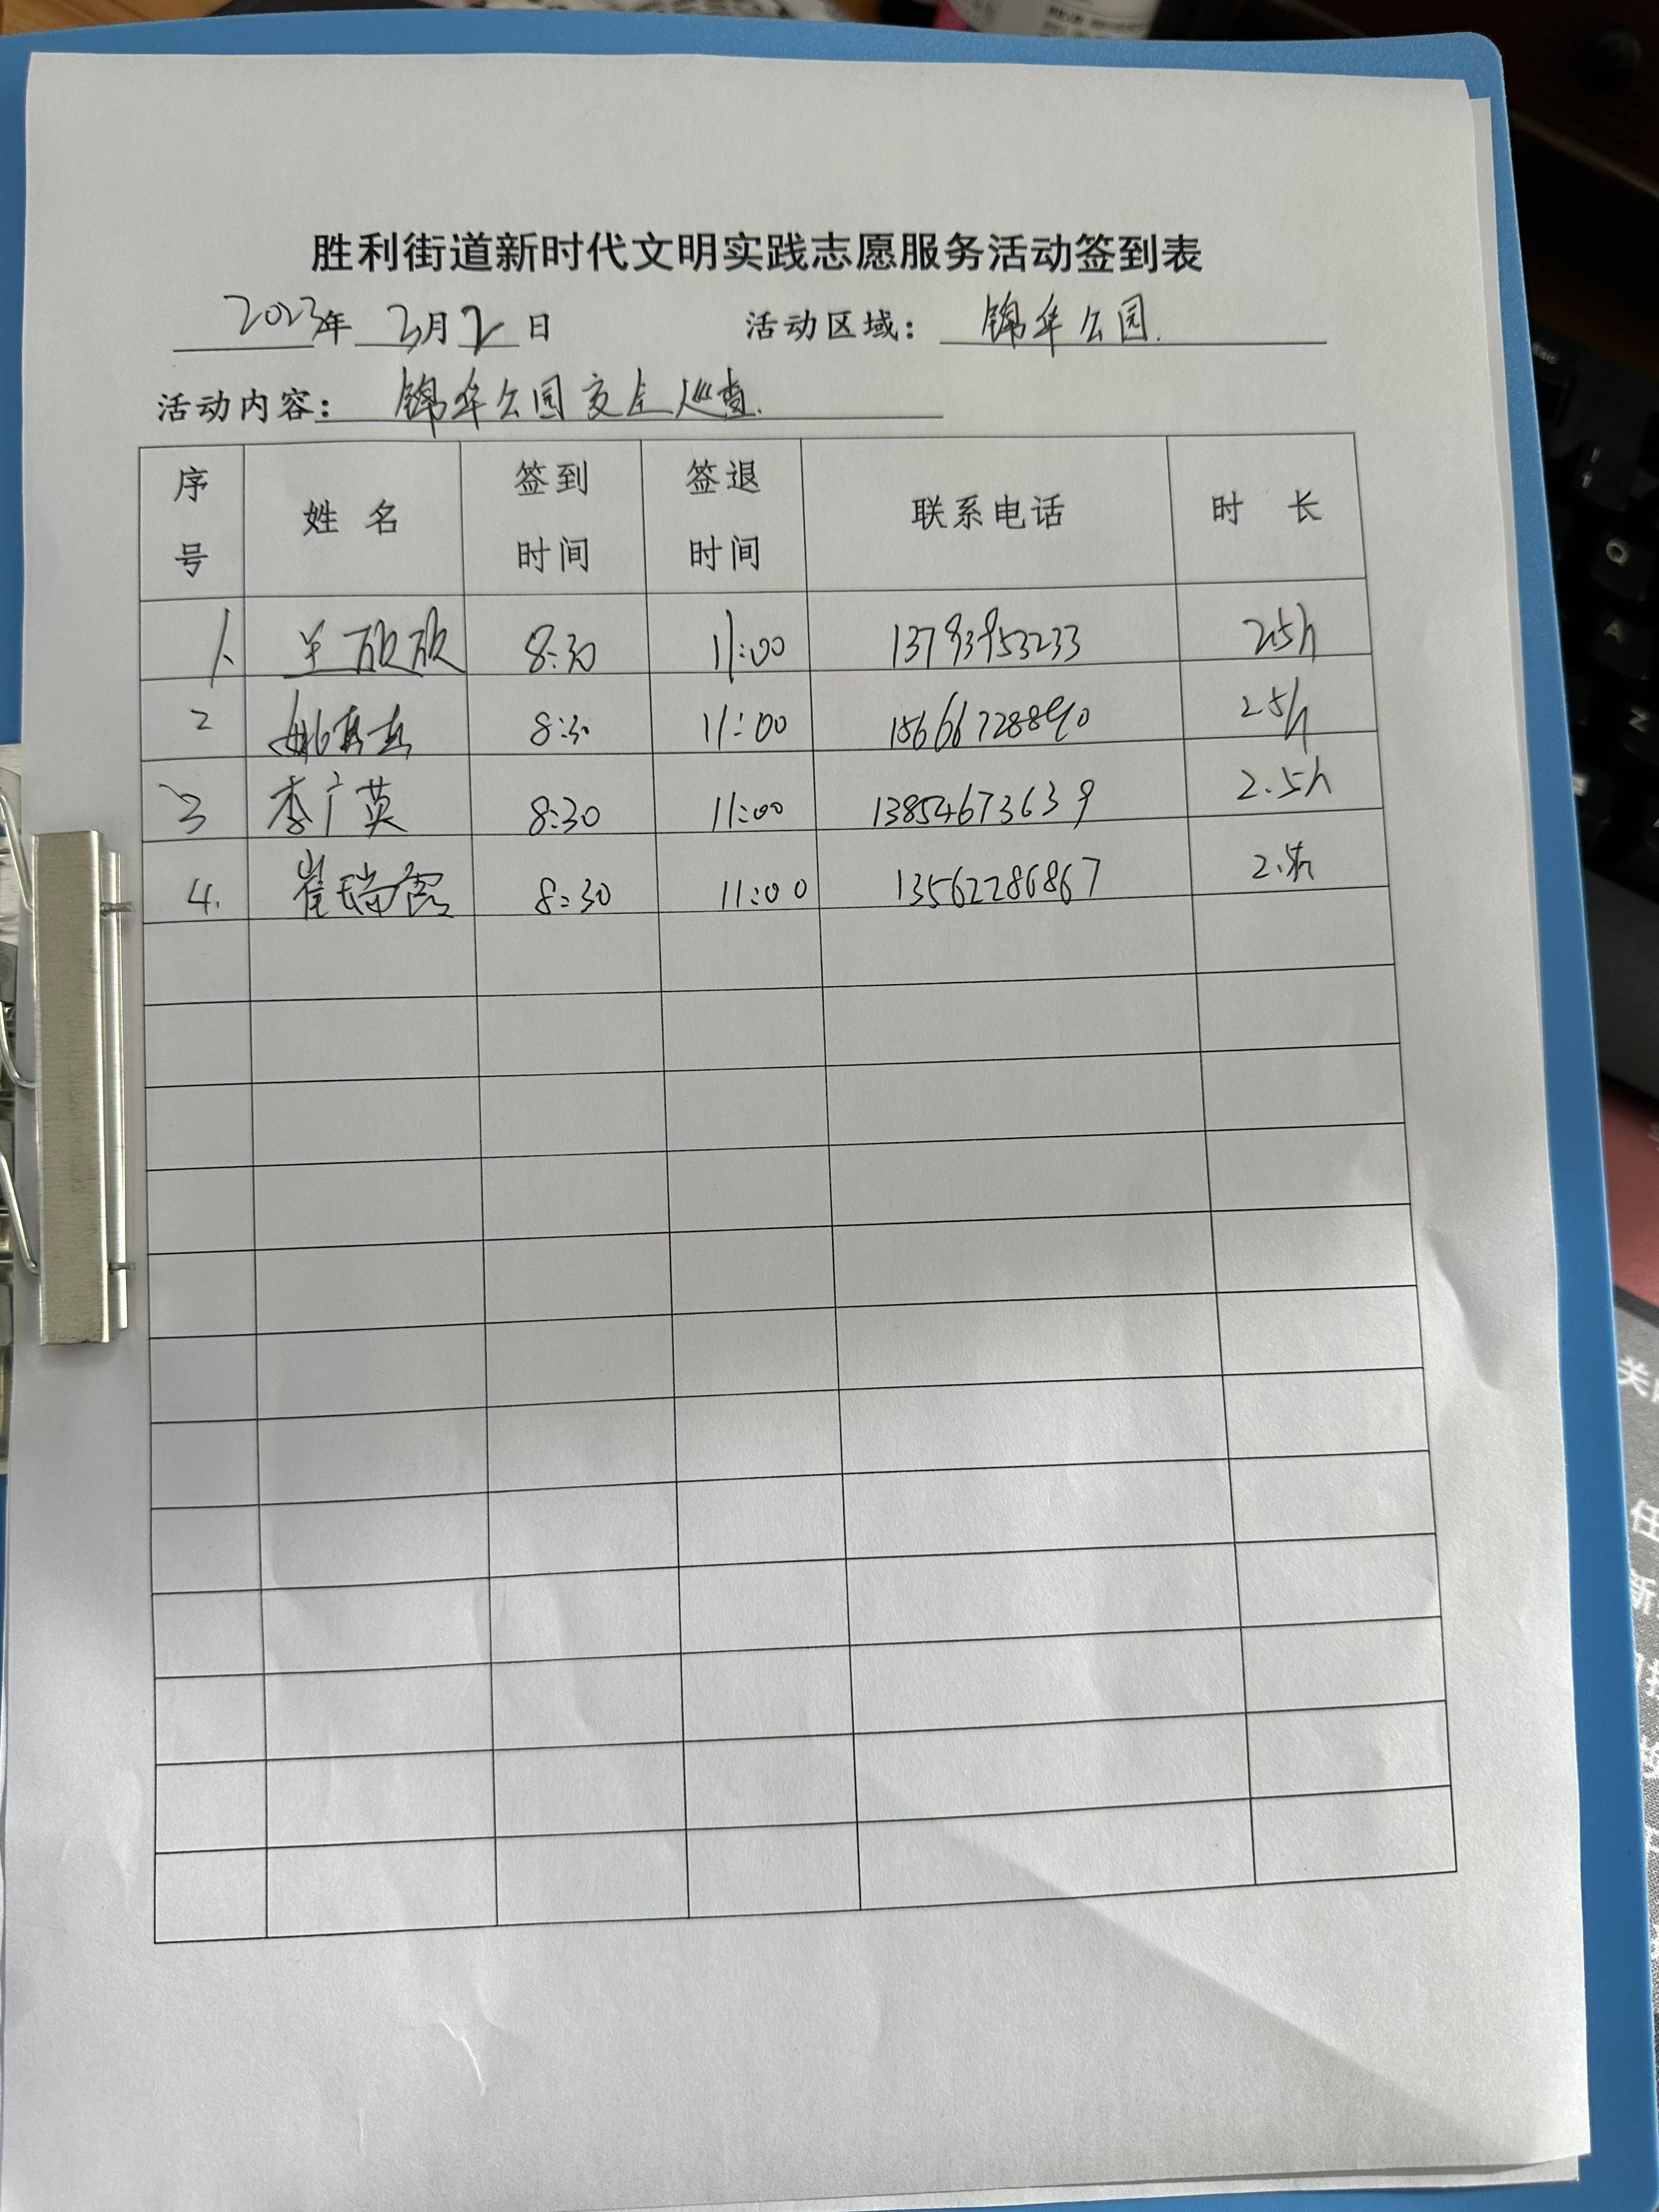 胜利街道新时代文明实践志愿服务活动签到表
2023年 3月2日 活动区域: 锦华公园.
活动内容: 锦华公园安全巡查.
序号 姓名 签到时间 签退时间 联系电话 时长
1. 兰欣欣 8:30 11:00 13793953233 2.5h
2 8:30 11:00 15666728890 2.5h
3 李广英 8:30 11:00 13854673639 2.5h
4. 崔瑞霞 8:30 11:00 13562286867 2.5h